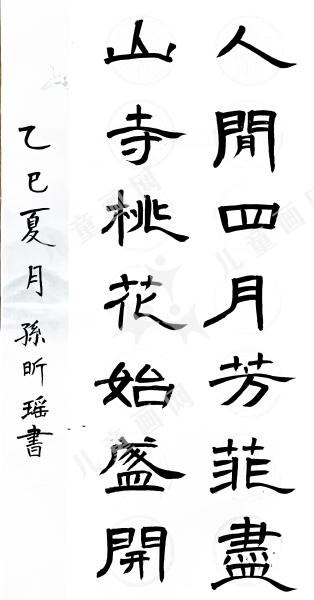 人間四月芳菲盡
山寺桃花始盛開
乙巳夏月孫昕瑶書
儿童画网